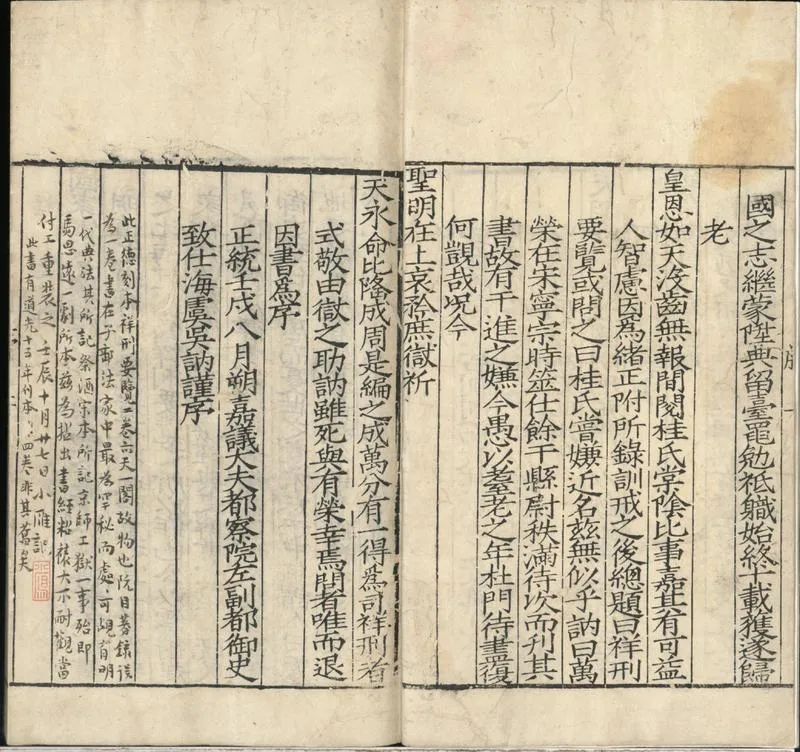 國之志繼蒙陞典留臺黽勉祗職始終十載獲遂歸
老
皇恩如天沒齒無報間閱桂氏棠陰比事嘉其有可益
人智慮因為緒正附所錄訓戒之後總題曰祥刑
要覽或問之曰桂氏嘗嫌近名茲無似乎訥曰萬
榮在宋寧宗時筮仕餘干縣尉秩滿待次而刊其
書故有干進之嫌今愚以耄老之年杜門待盡復
何覬哉況今
聖明在上哀矜庶獄祈
天永命比隆成周是編之成萬分有一得為司祥刑者
式敬由獄之助訥雖死與有榮幸焉問者唯而退
因書為序
正統壬戌八月朔嘉議大夫都察院左副都御史
致仕海虞吳訥謹序
此正德刻本祥刑要覽二卷亦天一閣故物也阮目著錄誤
為一卷書在子部法家中最為罕秘而處可覘有明
一代典法其所記祭酒宋本所記京師工獄一事殆即
馬思遠一劇所本茲為拈出書經裝大不耐觀當
付工重裝之 壬辰十月廿七日小雁記
此書有道光十三年付本四卷非其舊矣
序 一